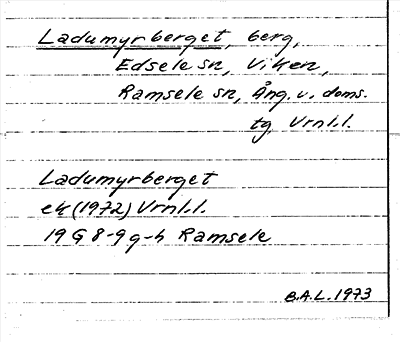 Ladumyrberget, berg,
Edsele sn, Viken,
Ramsele sn, Ång. v. doms.
tg Vrnl.l.
Ladumyrberget
ek (1972) Vrnl.l.
19 G 8-9 g-h Ramsele
B.A.L. 1973